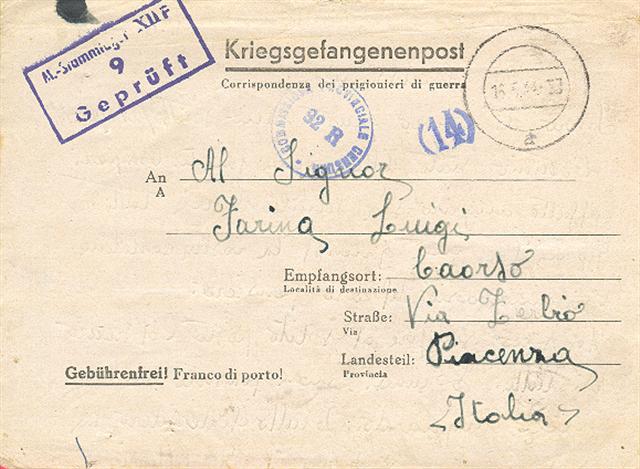 M.-Stammlager XII F
9
Geprüft
Kriegsgefangenenpost
Corrispondenza dei prigionieri di guerra
COMMISSIONE PROVINCIALE CENSURA
92 R
(14)
16.5.44
a
An Al Signor
A
Farina Luigi
Empfangsort: Caorso
Località di destinazione
Straße: Via Zerbio
Via
Landesteil: Piacenza
Provincia
Gebührenfrei! Franco di porto!
<Italia>